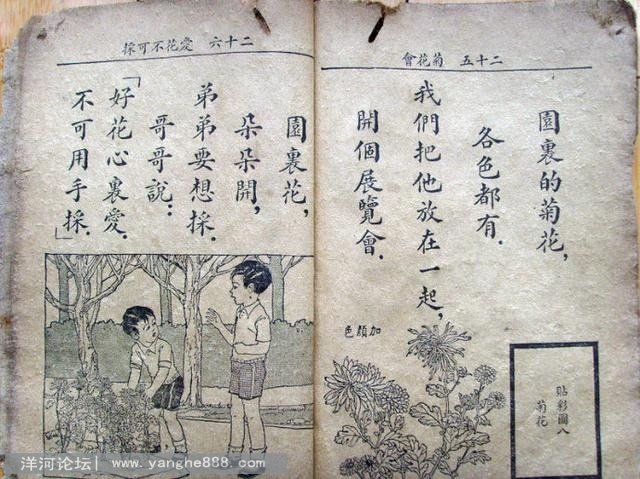 二十五 菊花會
園裏的菊花，
各色都有．
我們把他放在一起，
開個展覽會．
加顏色
貼彩圖八
菊花
二十六 愛花不可採
園裏花，
朵朵開，
弟弟要想採．
哥哥說：
「好花心裏愛．
不可用手採．」
洋河论坛| www.yanghe888.com